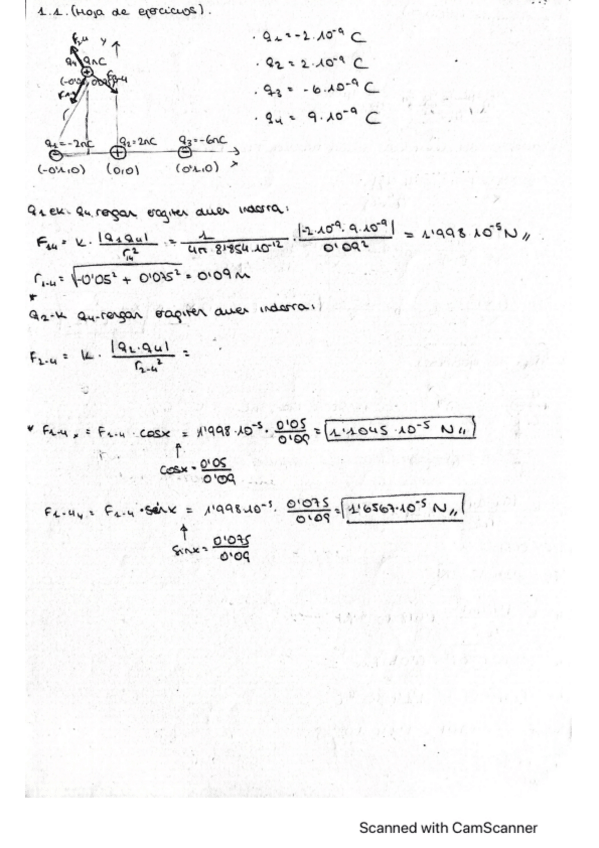 1.1. (Hoja de ejercicios).
F₃₄ y
q₄ 9nC
· q₁ = -2·10⁻⁹ C
· q₂ = 2·10⁻⁹ C
· q₃ = -6·10⁻⁹ C
· q₄ = 9·10⁻⁹ C
q₁=-2nC q₂=2nC q₃=-6nC
(-0'1,0) (0,0) (0'1,0) x
Q₁ek Q₄rengan eragiten duen indarra:
F₁₄ = k · |Q₁Q₄| / r₁₄² = 1 / 4π·8'854·10⁻¹² · |-2·10⁻⁹·9·10⁻⁹| / 0'09² = 1'998·10⁻⁵ N //
r₁₋₄ = √-0'05² + 0'075² = 0'09 m
*
Q₂-k Q₄-rengan eragiten duen indarra:
F₂₋₄ = k · |Q₂·Q₄| / r₂₋₄² =
* F₁₋₄ₓ = F₁₋₄ · cosx = 1'998·10⁻⁵ · 0'05 / 0'09 = 1'1045·10⁻⁵ N //
cosx = 0'05 / 0'09
F₁₋₄y = F₁₋₄ · sinx = 1'998·10⁻⁵ · 0'075 / 0'09 = 1'6567·10⁻⁵ N //
sinx = 0'075 / 0'09
Scanned with CamScanner